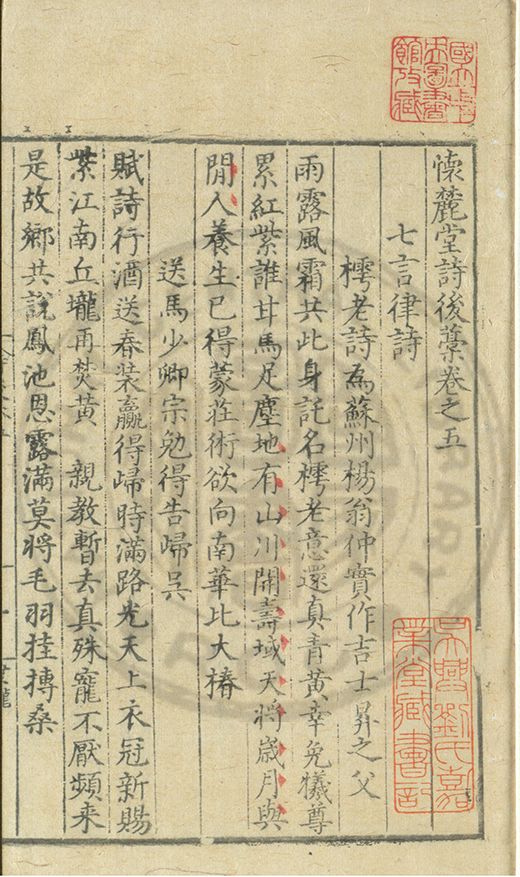 懷麓堂詩後藁卷之五
七言律詩
樗老詩為蘇州楊翁仲實作吉士昇之父
雨露風霜共此身託名樗老意還真青黃幸免犧尊
累紅紫誰甘馬足塵地有山川開壽域天將歲月與
閒人養生已得蒙莊術欲向南華比大椿
送馬少卿宗勉得告歸吳
賦詩行酒送春装贏得歸時滿路光天上衣冠新賜
紫江南丘壠再焚黃 親教暫去真殊寵不厭頻来
是故鄉共說鳳池恩露滿莫將毛羽挂摶桑
吳興劉氏嘉
業堂藏書記